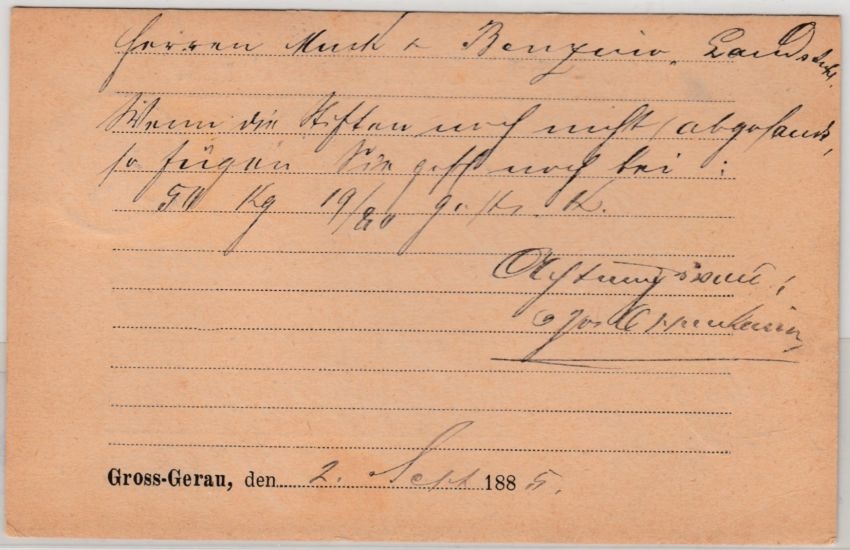 Herren Muck & Benzino, Landstuhl.
Wenn die Stiften noch nicht abgesandt,
so fügen Sie gefl noch bei :
50 Kg 19/80
Achtungsvoll!
Jos Oppenheim
Gross-Gerau, den 2. Sept 1885.